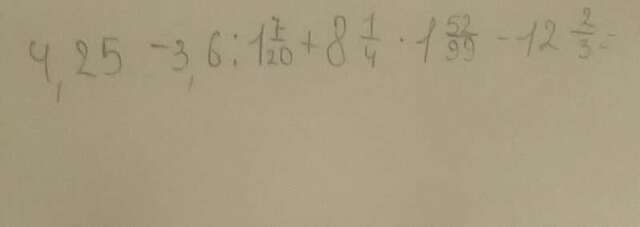 4,25 - 3,6 : 1 7/20 + 8 1/4 · 1 52/99 - 12 2/3 =